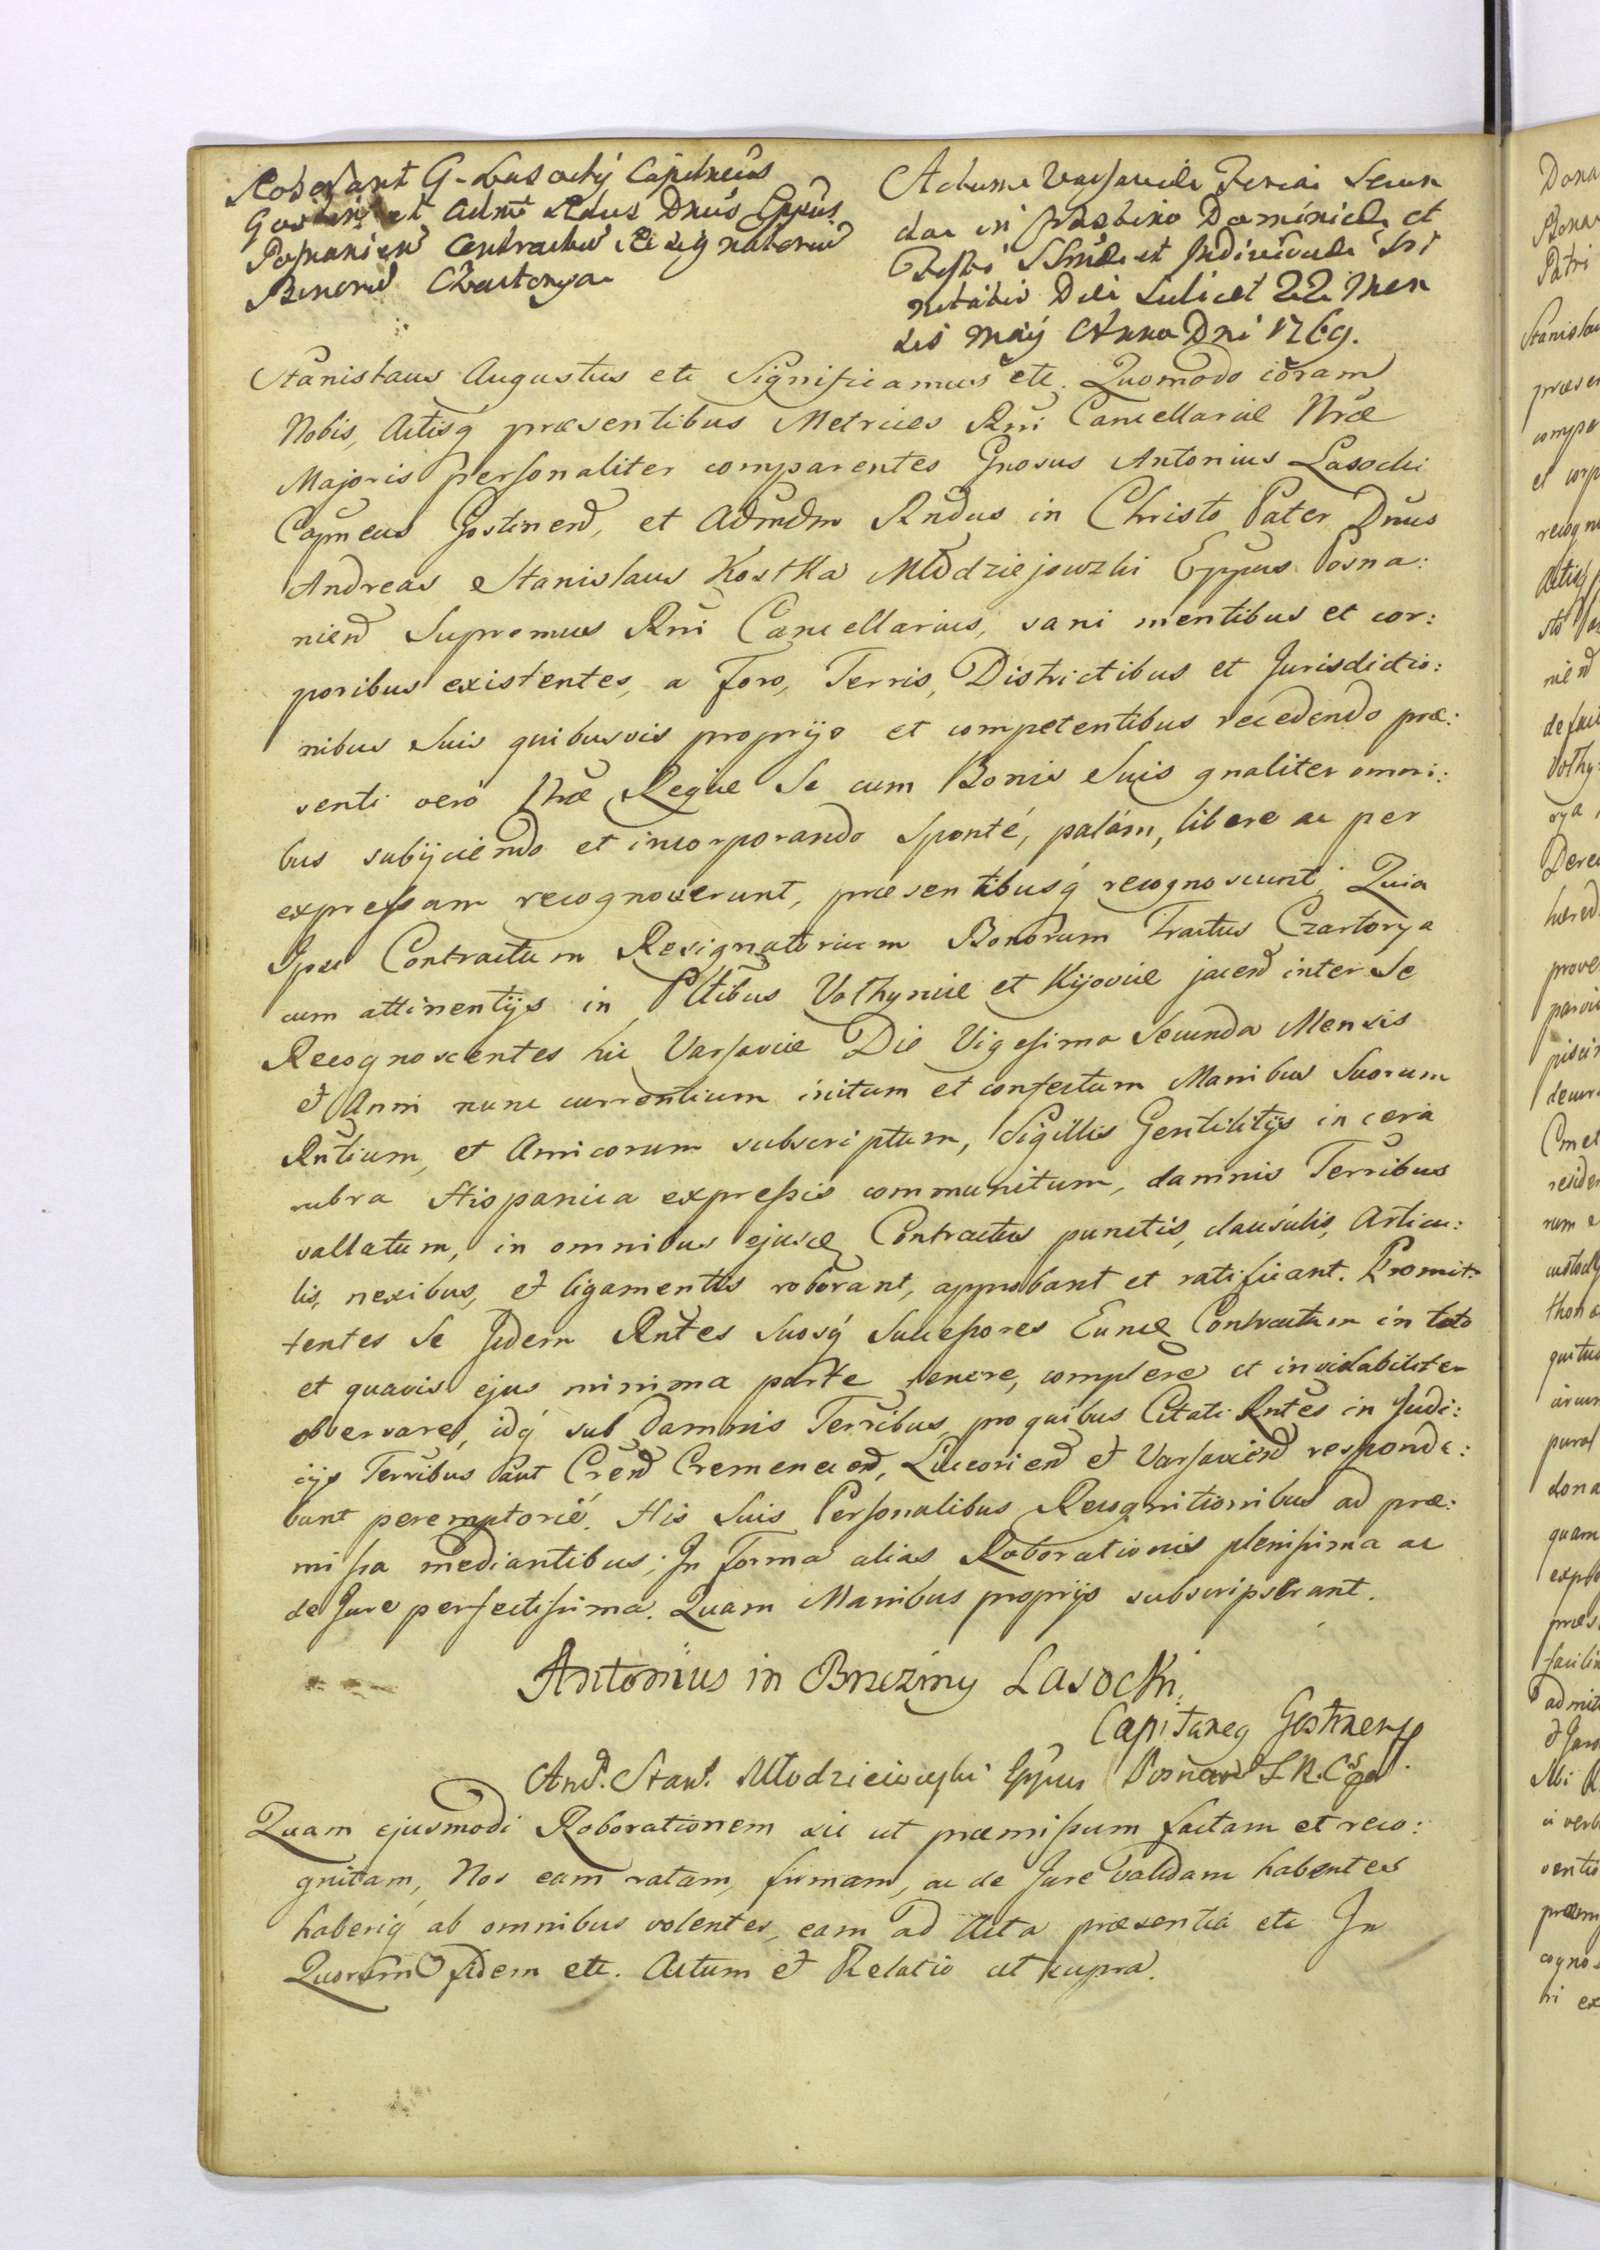 Roborant G. Lasocký Capitneus
Gostin et Adm Rdus Dnus Eppus
Posnanien Contractus Resignatorius
Bonorum Czartorya
Actum Varsaviæ Feria Secun
da in Crastino Dominicæ et
Festi SSmæ et Individuæ Tri
nitatis Die scilicet 22 Men
sis Maÿ Anno Dni 1769.
Stanislaus Augustus etc Significamus etc. Quomodo coram
Nobis, Actisq præsentibus Metrices Rni Cancellariæ Nræ
Majoris personaliter comparentes Gnosus Antonius Lasocki
Capneus Gostinen, et Admdm Rndus in Christo Pater Dnus
Andreas Stanislaus Kostka Młodziejowski Eppus Posna:
nien Supremus Rni Cancellarius, sani mentibus et cor:
poribus existentes, a Foro, Terris, Districtibus et Jurisdictio:
nibus Suis quibusvis proprijs et competentibus recedendo præ:
senti vero Nræ Regiæ Se cum Bonis Suis gnaliter omni:
bus subijciendo et incorporando sponté, palám, libere ac per
expressam recognoverunt, præsentibusq recognoscunt; Quia
Ipsi Contractum Resignatorium Bonorum Tractus Czartorya
cum attinentijs in Pltibus Volhyniæ et Kijoviæ jacen inter Se
Recognoscentes hic Varsaviæ Die Vigesima Secunda Mensis
et Anni nunc currentium initum et confectum Manibus Suorum
Rntium, et Amicorum subscriptum, Sigillis Gentilitijs in cera
rubra Hispanica expressis communitum, damnis Terribus
vallatum, in omnibus ejusd Contractus punctis, clausulis, Articu:
lis, nexibus, et ligamentis roborant, approbant et ratificant. Promit:
tentes Se Jidem Rntes Suosq Successores Eund Contractum in toto
et quavis ejus minima parte tenere, complere et inviolabiliter
observare, idq sub damnis Terribus, pro quibus Citati Rntes in Judi:
cijs Terribus aut Cren Cremenecen, Luceorien et Varsavien responde:
bunt peremptorié. His Suis Personalibus Recognitionibus ad præ:
missa mediantibus; In Forma alias Roborationis plenissima ac
de Jure perfectissima. Quam Manibus proprijs subscripserant.
Antonius in Brzeziny Lasocki
Capitaneg Gostinensis
And. Stan. Młodzieiowski Eppus Posnan S. R. C
Quam ejusmodi Roborationem sic ut præmissum factam et reco:
gnitam, Nos eam ratam, firmam, ac de Jure validam habentes
haberiq ab omnibus volentes, eam ad Acta præsentia etc In
Quorum fidem etc. Actum et Relatio ut supra.